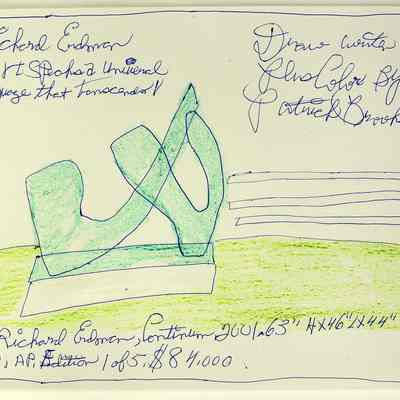 chard Erdman
Art Speaks a Universal
uage that transcends
Draw write
plus Color By
Patrick Brook
Richard Erdman, Continum 2001. 63" H x 46" L x 44"
, AP, Edition 1 of 5, $84,000.